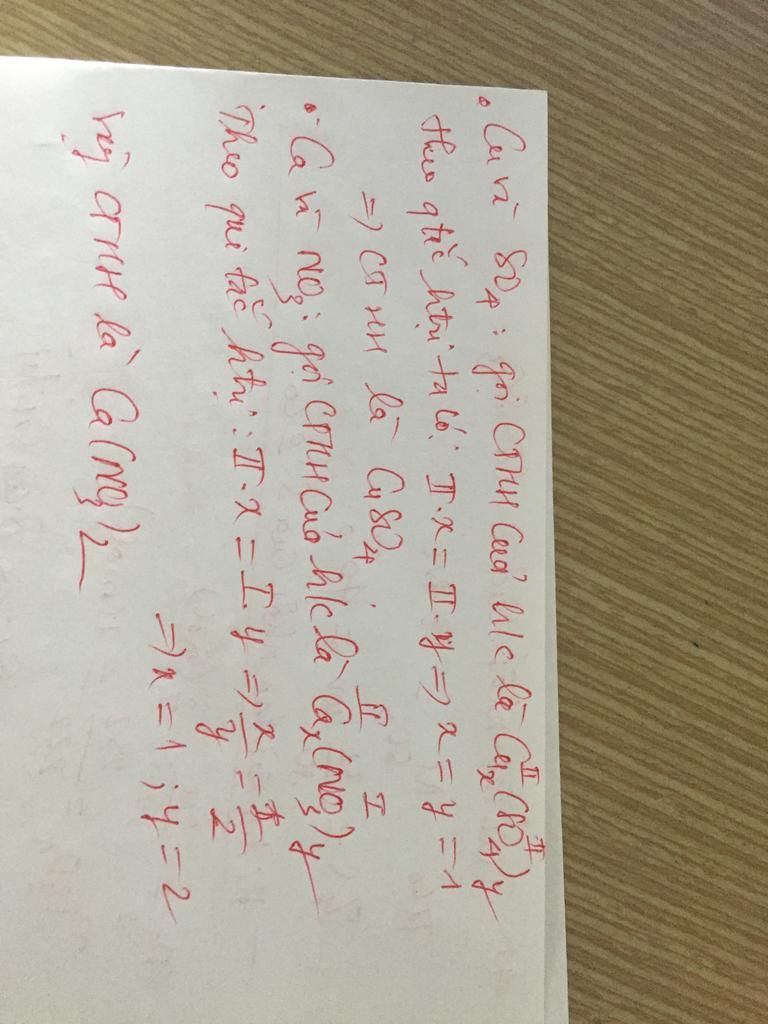 • Cu và SO₄ : gọi CTHH của h/c là Cuₓ^II(SO₄)ᵧ^II
theo qtắc htrị ta có: II.x = II.y => x = y = 1
=> CTHH là CuSO₄
• Ca và NO₃ : gọi CTHH của h/c là Caₓ^II(NO₃)ᵧ^I
Theo qui tắc htrị : II.x = I.y => x/y = I/2
=> x = 1 ; y = 2
vậy CTHH là Ca(NO₃)₂